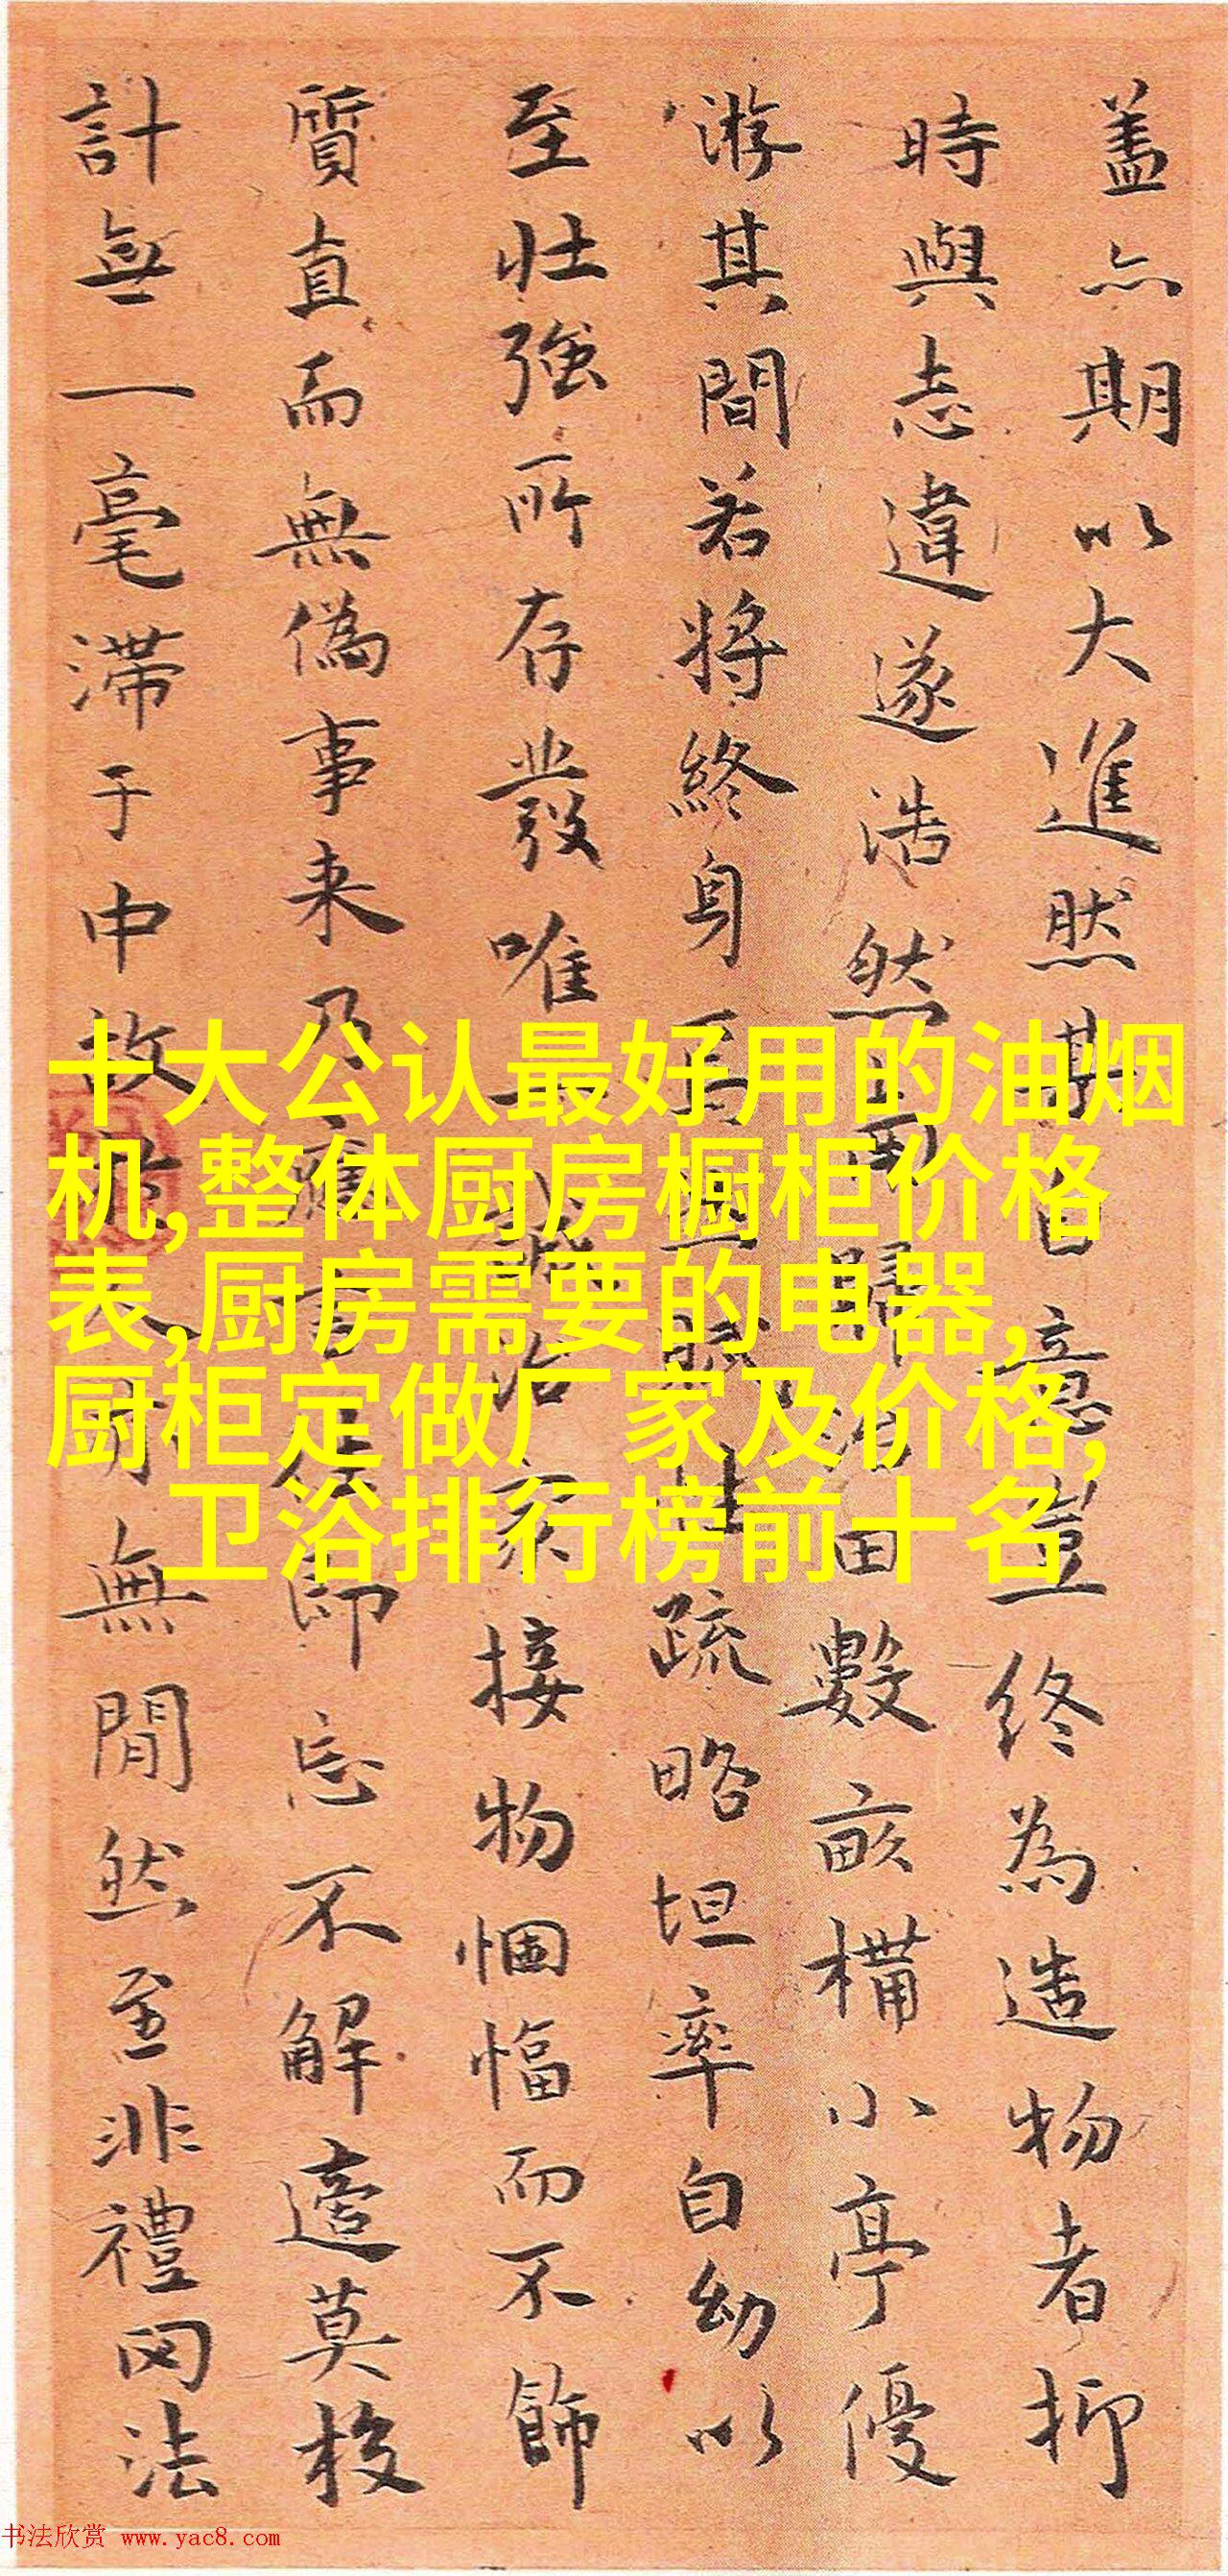 十大公认最好用的油烟
机,整体厨房橱柜价格
表,厨房需要的电器,
厨柜定做厂家及价格,
卫浴排行榜前十名
盖亦期以大進然期自意豈終為造物者抑
時與志違遂浩然而歸田數畝構小亭優
游其間若將終身焉且賦性疏略坦率自幼以
至壮強所存發唯一治家接物悃愊而不飾
質直而無偽事来乃應即忘不解莫校
計無一毫滞于中故人無閒然至非禮罔法
书法欣赏 www.yac8.com